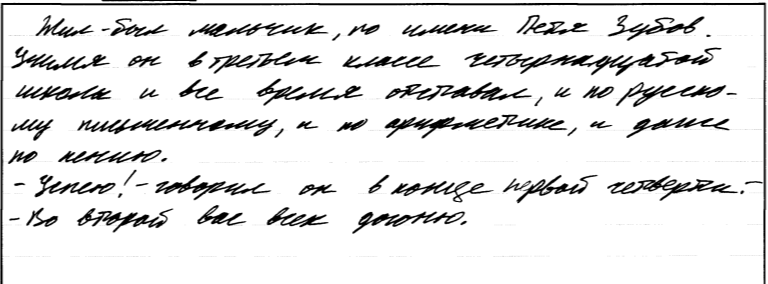 Жил-был мальчик, по имени Петя Зубов.
Учился он в третьем классе четырнадцатой
школы и все время отставал, и по русско-
му письменному, и по арифметике, и даже
по пению.
- Успею! - говорил он в конце первой четверти. -
- Во второй вас всех догоню.